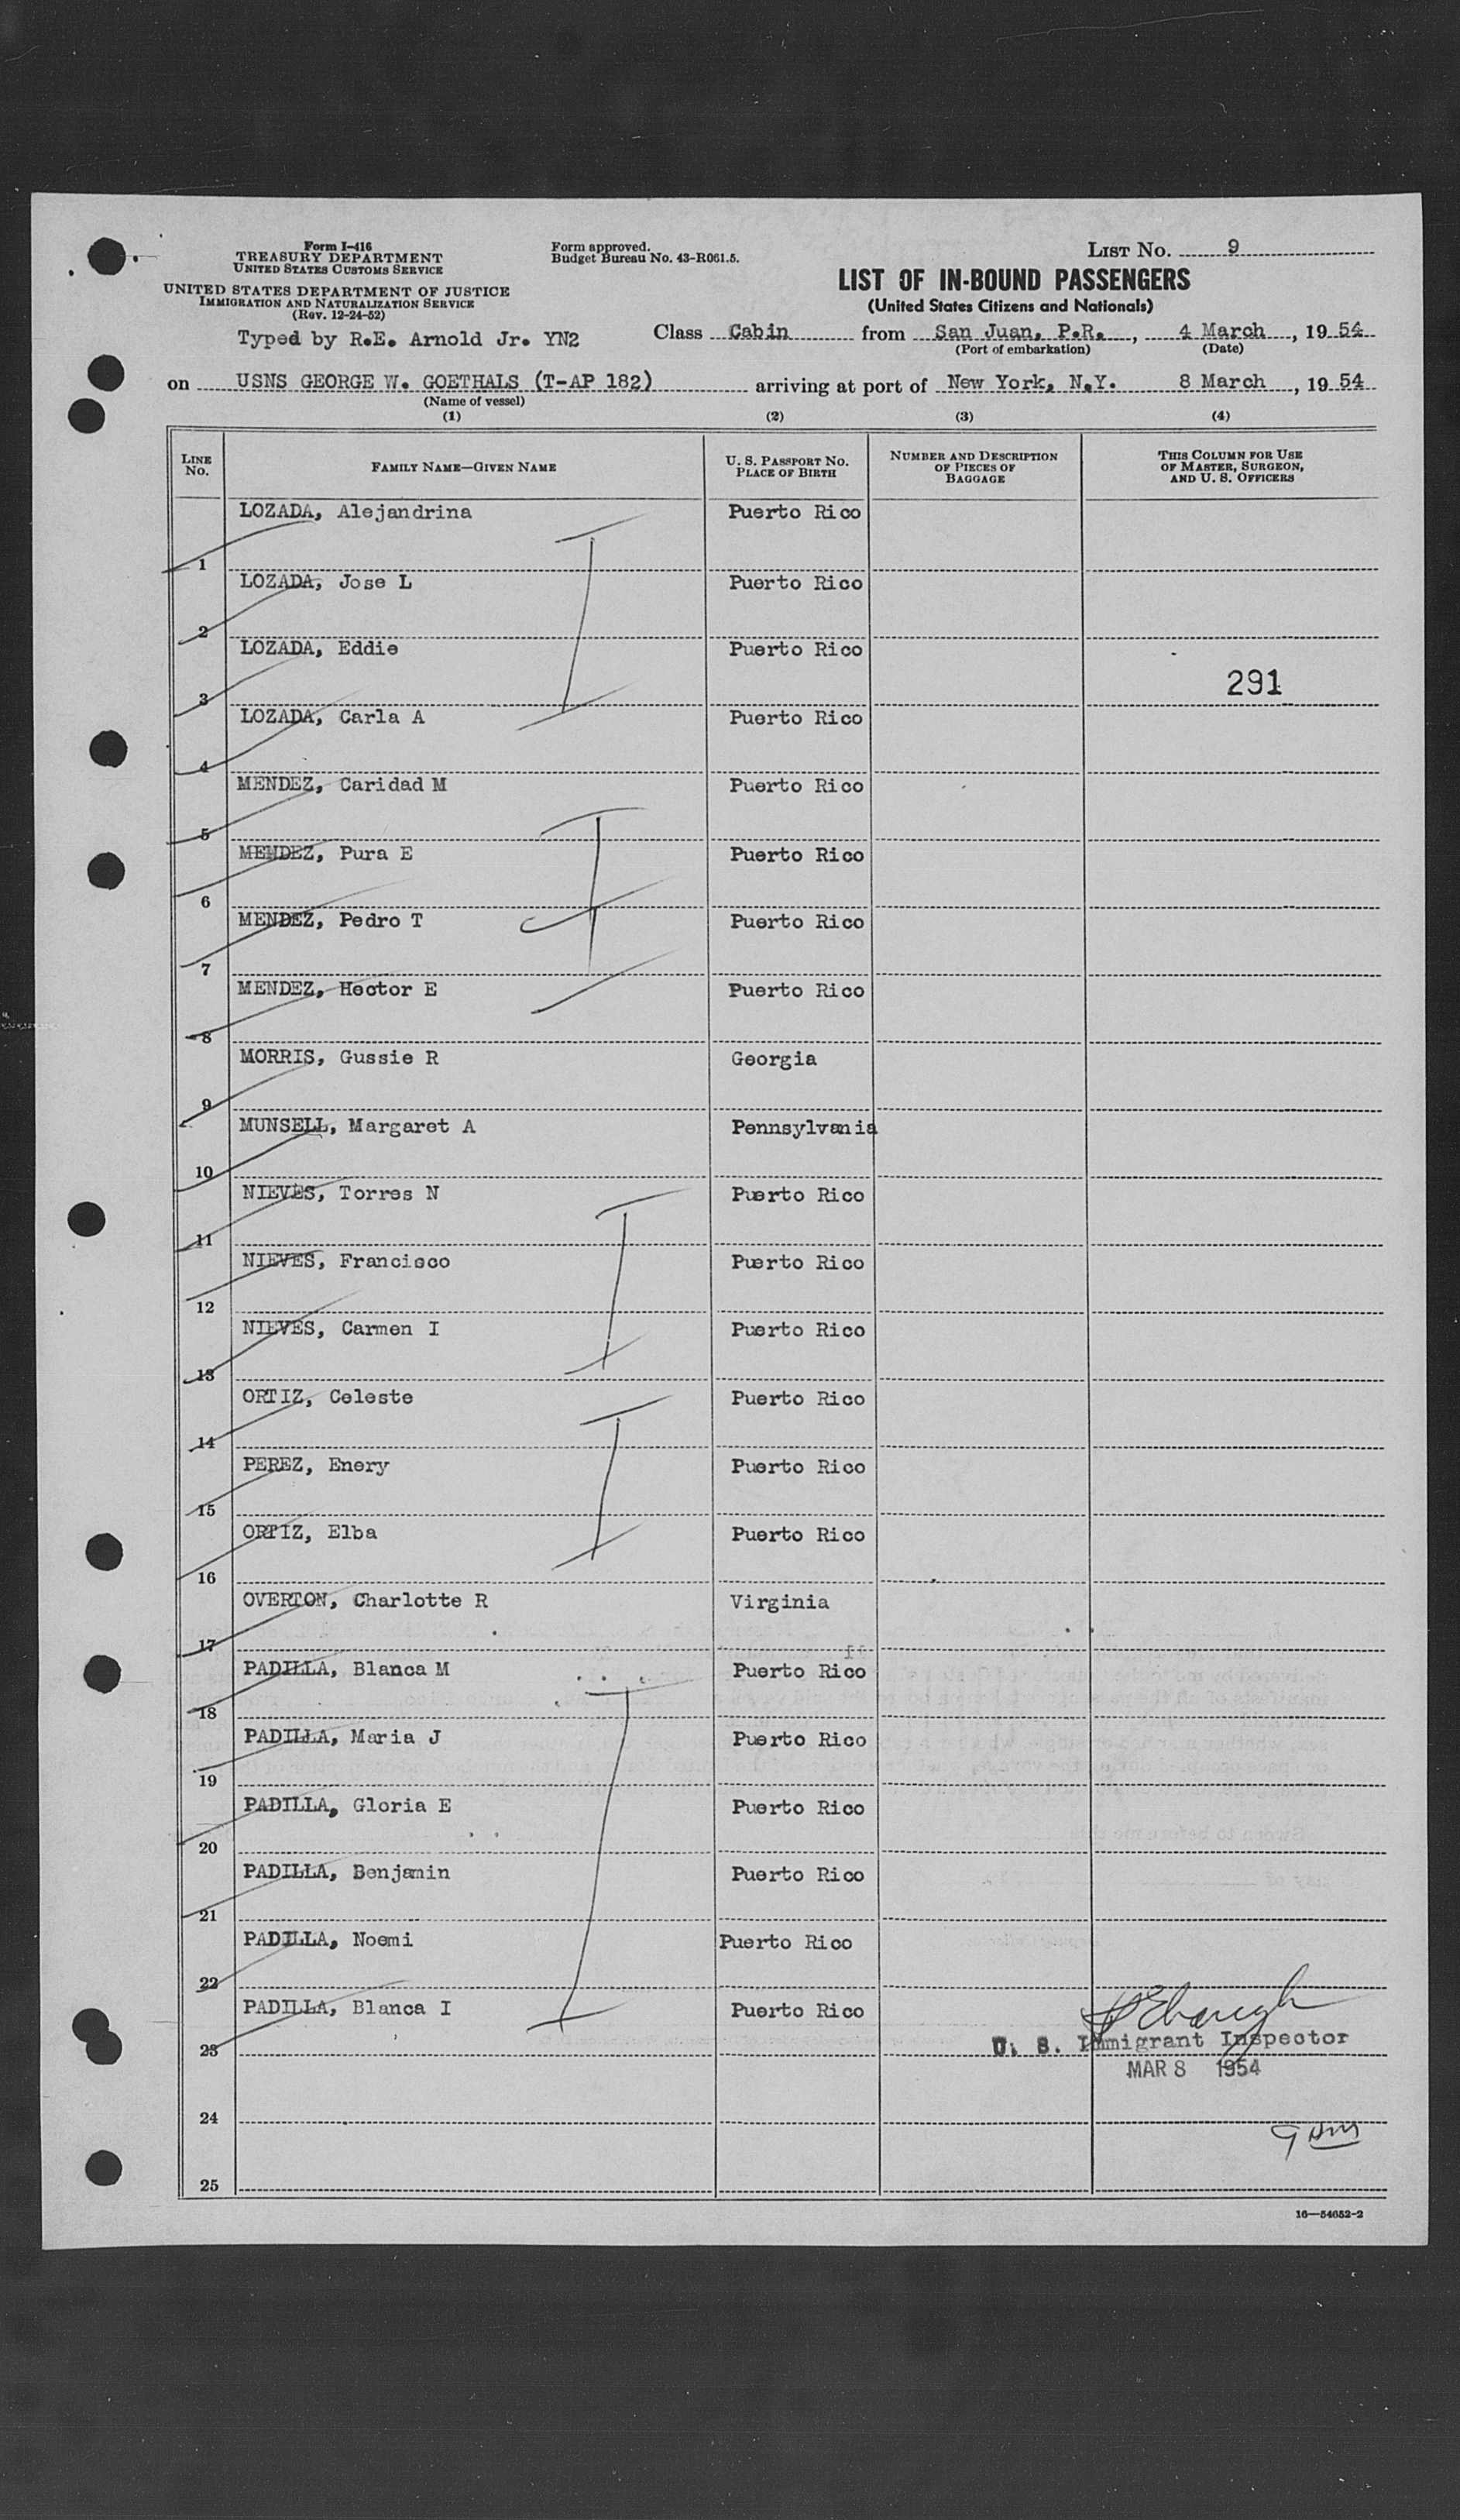 Form I-416
TREASURY DEPARTMENT
UNITED STATES CUSTOMS SERVICE
UNITED STATES DEPARTMENT OF JUSTICE
IMMIGRATION AND NATURALIZATION SERVICE
(Rev. 12-24-52)
Typed by R.E. Arnold Jr. YN2
Form approved.
Budget Bureau No. 43-R061.5.
LIST NO. 9
LIST OF IN-BOUND PASSENGERS
(United States Citizens and Nationals)
Class Cabin from San Juan, P.R., 4 March, 19 54
(Port of embarkation) (Date)
on USNS GEORGE W. GOETHALS (T-AP 182) arriving at port of New York, N.Y. 8 March, 19 54
(Name of vessel)
(1) (2) (3) (4)
LINE NO. FAMILY NAME—GIVEN NAME U. S. PASSPORT NO. PLACE OF BIRTH NUMBER AND DESCRIPTION OF PIECES OF BAGGAGE THIS COLUMN FOR USE OF MASTER, SURGEON, AND U. S. OFFICERS
1 LOZADA, Alejandrina Puerto Rico
2 LOZADA, Jose L Puerto Rico
3 LOZADA, Eddie Puerto Rico 291
4 LOZADA, Carla A Puerto Rico
5 MENDEZ, Caridad M Puerto Rico
6 MENDEZ, Pura E Puerto Rico
7 MENDEZ, Pedro T Puerto Rico
8 MENDEZ, Hector E Puerto Rico
9 MORRIS, Gussie R Georgia
10 MUNSELL, Margaret A Pennsylvania
11 NIEVES, Torres N Puerto Rico
12 NIEVES, Francisco Puerto Rico
13 NIEVES, Carmen I Puerto Rico
14 ORTIZ, Celeste Puerto Rico
15 PEREZ, Enery Puerto Rico
16 ORTIZ, Elba Puerto Rico
17 OVERTON, Charlotte R Virginia
18 PADILLA, Blanca M Puerto Rico
19 PADILLA, Maria J Puerto Rico
20 PADILLA, Gloria E Puerto Rico
21 PADILLA, Benjamin Puerto Rico
22 PADILLA, Noemi Puerto Rico
23 PADILLA, Blanca I Puerto Rico
U. S. Immigrant Inspector
MAR 8 1954
24
9 AM
25
16—54652-2